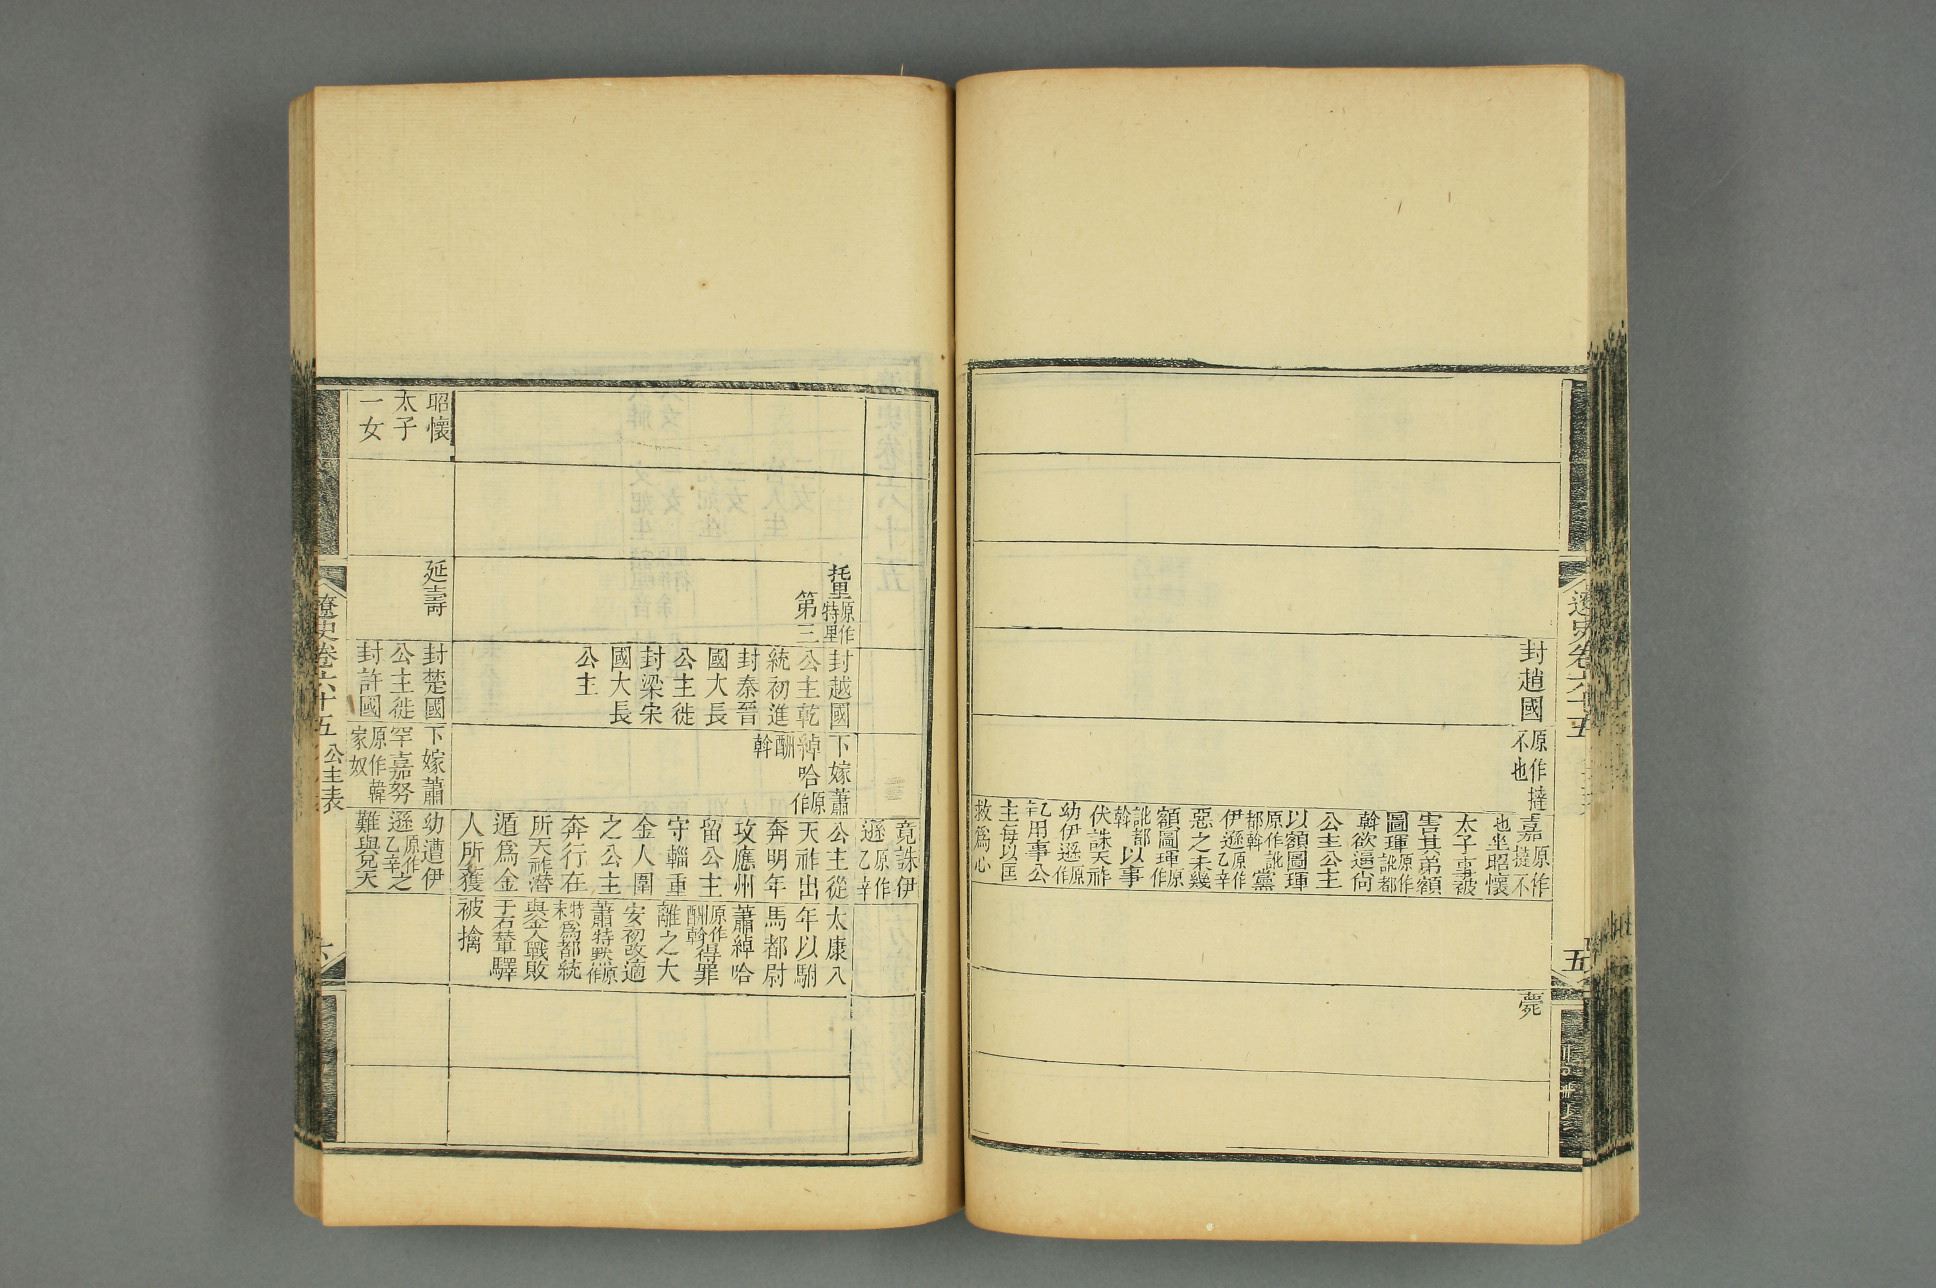 遼史卷六十五
五
封趙國
原作撻
不也
嘉原作撻不
也坐昭懷
太子事被
害其弟額
圖琿原作訛都
斡欲逼尚
公主公主
以額圖琿
原作訛都斡黨
伊遜原作乙辛
惡之未幾
額圖琿原作
訛都斡以事
伏誅天祚
幼伊遜原作
乙辛用事公
主每以匡
救爲心
薨
竟誅伊
遜原作乙辛
托里原作特里
第三
封越國
公主乾
統初進
封秦晉
國大長
公主徙
封梁宋
國大長
公主
下嫁蕭
綽哈原作
酬斡
公主從
天祚出
奔明年
攻應州
留公主
守輜重
金人圍
之公主
奔行在
所天祚潛
遁爲金
人所獲
太康八
年以駙
馬都尉
蕭綽哈
原作酬斡得罪
離之大
安初改適
蕭特默原作
特末爲都統
與金人戰敗
于石輦驛
被擒
昭懷
太子
一女
延壽
封楚國
公主徙
封許國
下嫁蕭
罕嘉努
原作韓家奴
幼遭伊
遜原作乙辛之
難與兄天
遼史卷六十五 公主表
六